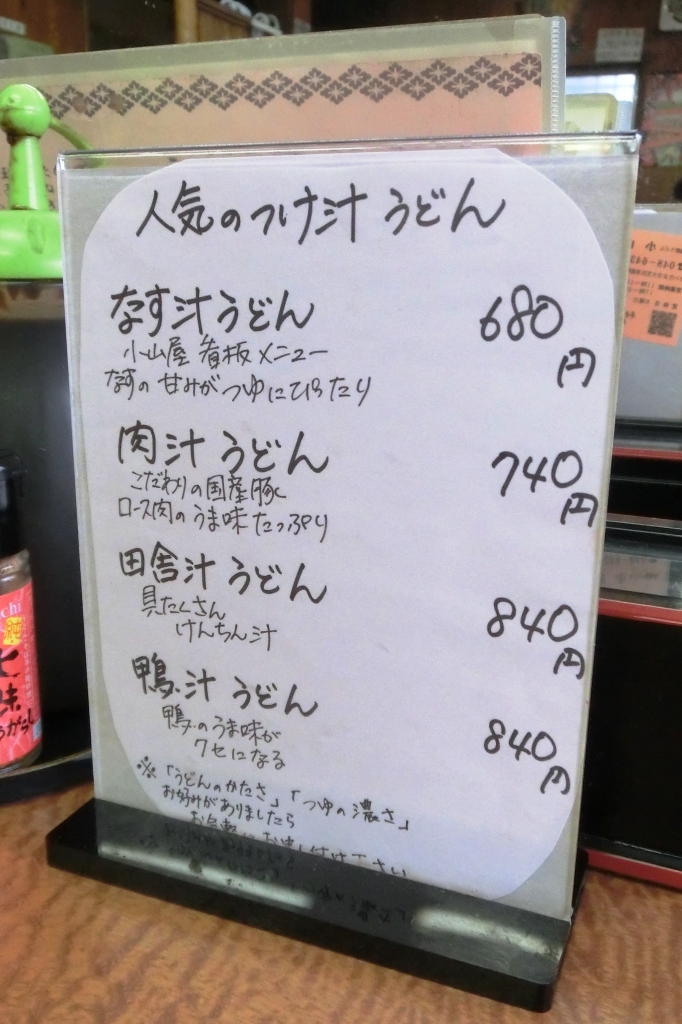 人気のつけ汁うどん
なす汁うどん 680円
小山屋 看板メニュー
なすの甘みがつゆにぴったり
肉汁うどん 740円
こだわりの国産豚
ロース肉のうま味たっぷり
田舎汁うどん 840円
具たくさん
けんちん汁
鴨汁うどん 840円
鴨のうま味が
クセになる
※「うどんのかたさ」「つゆの濃さ」
お好みがありましたら
お気軽にお申し付け下さい
七味